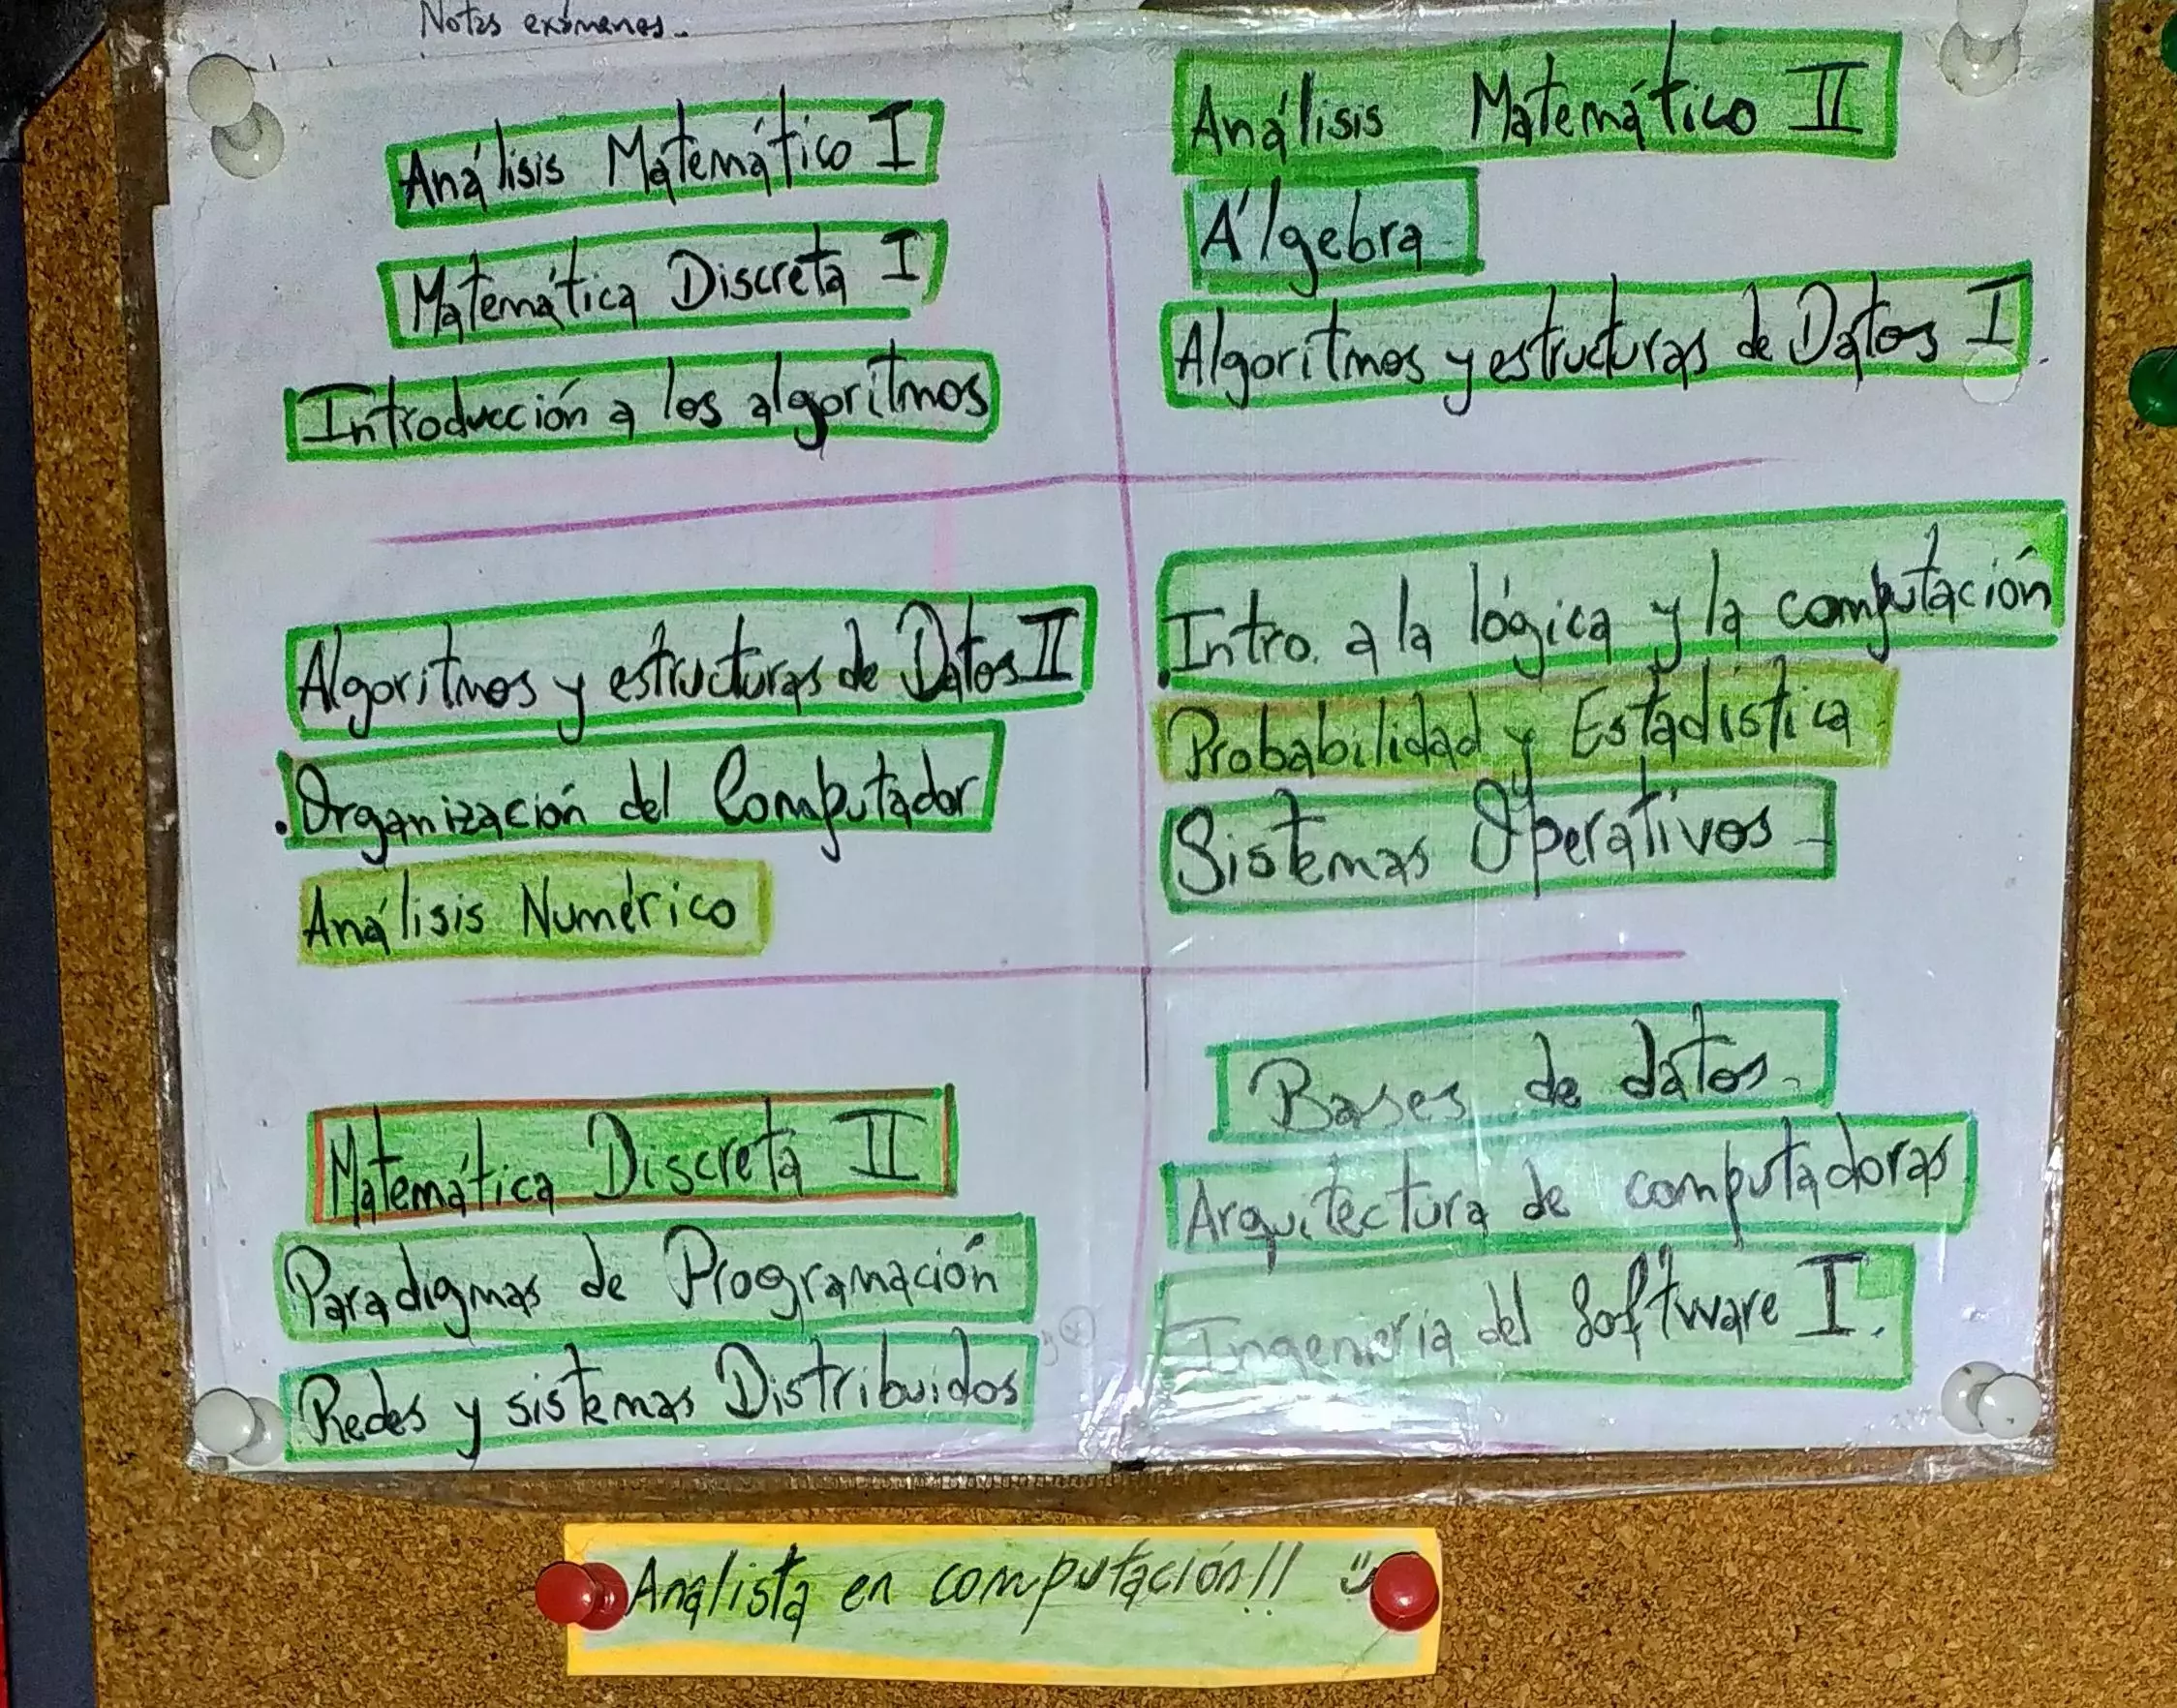 Notas exámenes.
Análisis Matemático I
Matemática Discreta I
Introducción a los algoritmos
Análisis Matemático II
Álgebra
Algoritmos y estructuras de Datos I.
Algoritmos y estructuras de Datos II
. Organización del Computador
Análisis Numérico
. Intro. a la lógica y la computación
Probabilidad y Estadística
Sistemas Operativos
Matemática Discreta II
Paradigmas de Programación
Redes y sistemas Distribuidos
Bases de datos
Arquitectura de computadoras
Ingeniería del Software I.
Analista en computación!!